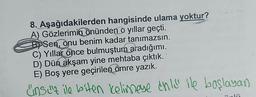 8. Aşağıdakilerden hangisinde ulama yoktur?
A) Gözlerimin önünden o yıllar geçti.
B) Sen, onu benim kadar tanımazsın.
C) Yıllar önce bulmuştum aradığımı.
D) Dün akşam yine mehtaba çıktık.
E) Boş yere geçirilen ömre yazık.
ünsüz ile biten kelimeye ünlü ile başlayan